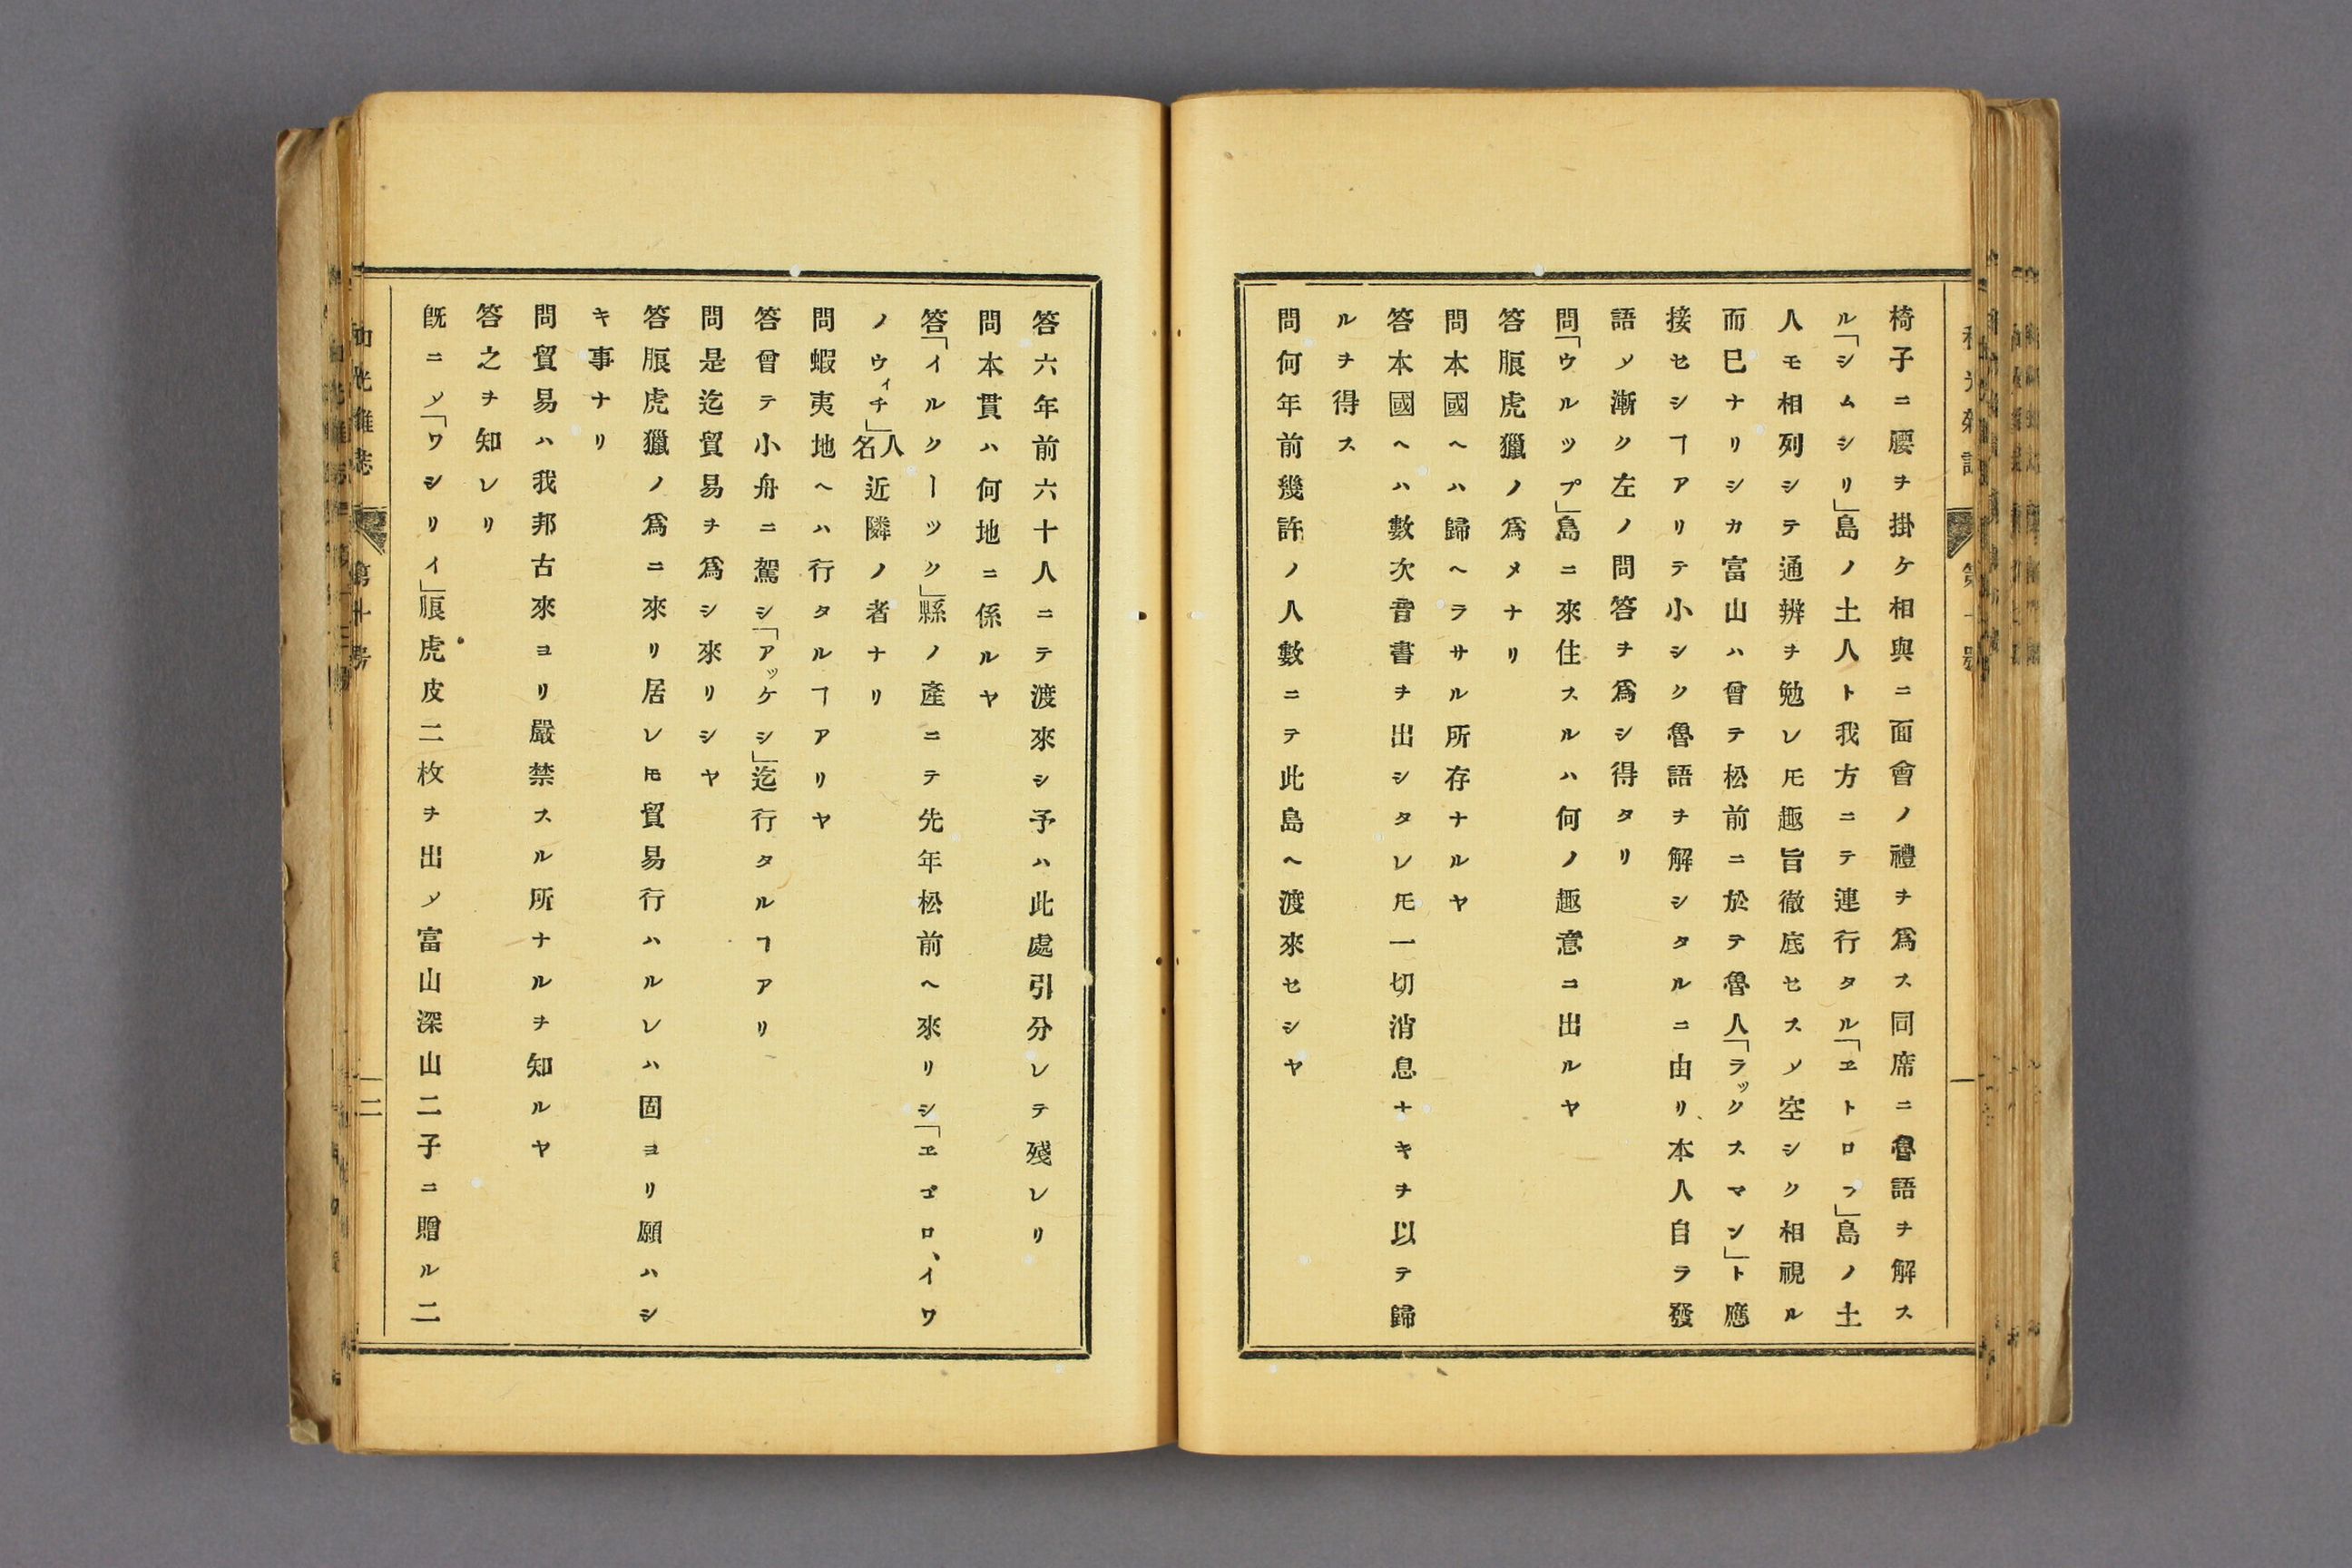 椅子ニ腰ヲ掛ケ相與ニ面會ノ禮ヲ爲ス同席ニ魯語ヲ解ス
ル「シムシリ」島ノ土人ト我方ニテ連行タル「ヱトロフ」島ノ土
人モ相列シテ通辨ヲ勉レ𪜈趣旨徹底セスメ空シク相視ル
而巳ナリシカ富山ハ曾テ松前ニ於テ魯人「ラックスマン」ト應
接セシヿアリテ小シク魯語ヲ解シタルニ由リ本人自ラ發
語メ漸ク左ノ問答ヲ爲シ得タリ
問「ウルップ」島ニ來住スルハ何ノ趣意ニ出ルヤ
答脹虎獵ノ爲メナリ
問本國ヘハ歸ヘラサル所存ナルヤ
答本國ヘハ數次音書ヲ出シタレ𪜈一切消息ナキヲ以テ歸
ルヲ得ス
問何年前幾許ノ人數ニテ此島ヘ渡來セシヤ
答六年前六十人ニテ渡來シ予ハ此處引分レテ殘レリ
問本貫ハ何地ニ係ルヤ
答「イルクーツク」縣ノ產ニテ先年松前ヘ來リシ「ヱゴロ、イワ
ノウィチ」人名近隣ノ者ナリ
問蝦夷地ヘハ行タルヿアリヤ
答曾テ小舟ニ駕シ「アッケシ」迄行タルヿアリ
問是迄貿易ヲ爲シ來リシヤ
答脹虎獵ノ爲ニ來リ居レ𪜈貿易行ハルレハ固ヨリ願ハシ
キ事ナリ
問貿易ハ我邦古來ヨリ嚴禁スル所ナルヲ知ルヤ
答之ヲ知レリ
旣ニメ「ワシリイ」脹虎皮二枚ヲ出メ富山深山二子ニ贈ル二
第十号
二